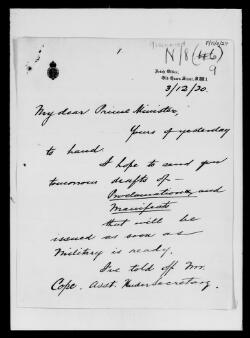 N/8 (46)
9
Irish Office,
Old Queen Street, S.W.1
3/12/20.
My dear Prime Minister,
Yours of yesterday
to hand.
I hope to send you
tomorrow drafts of –
Proclamations, and
Manifesto
that will be
issued as soon as
Military is ready.
I've told off Mr.
Cope. Asst. Under Secretary.